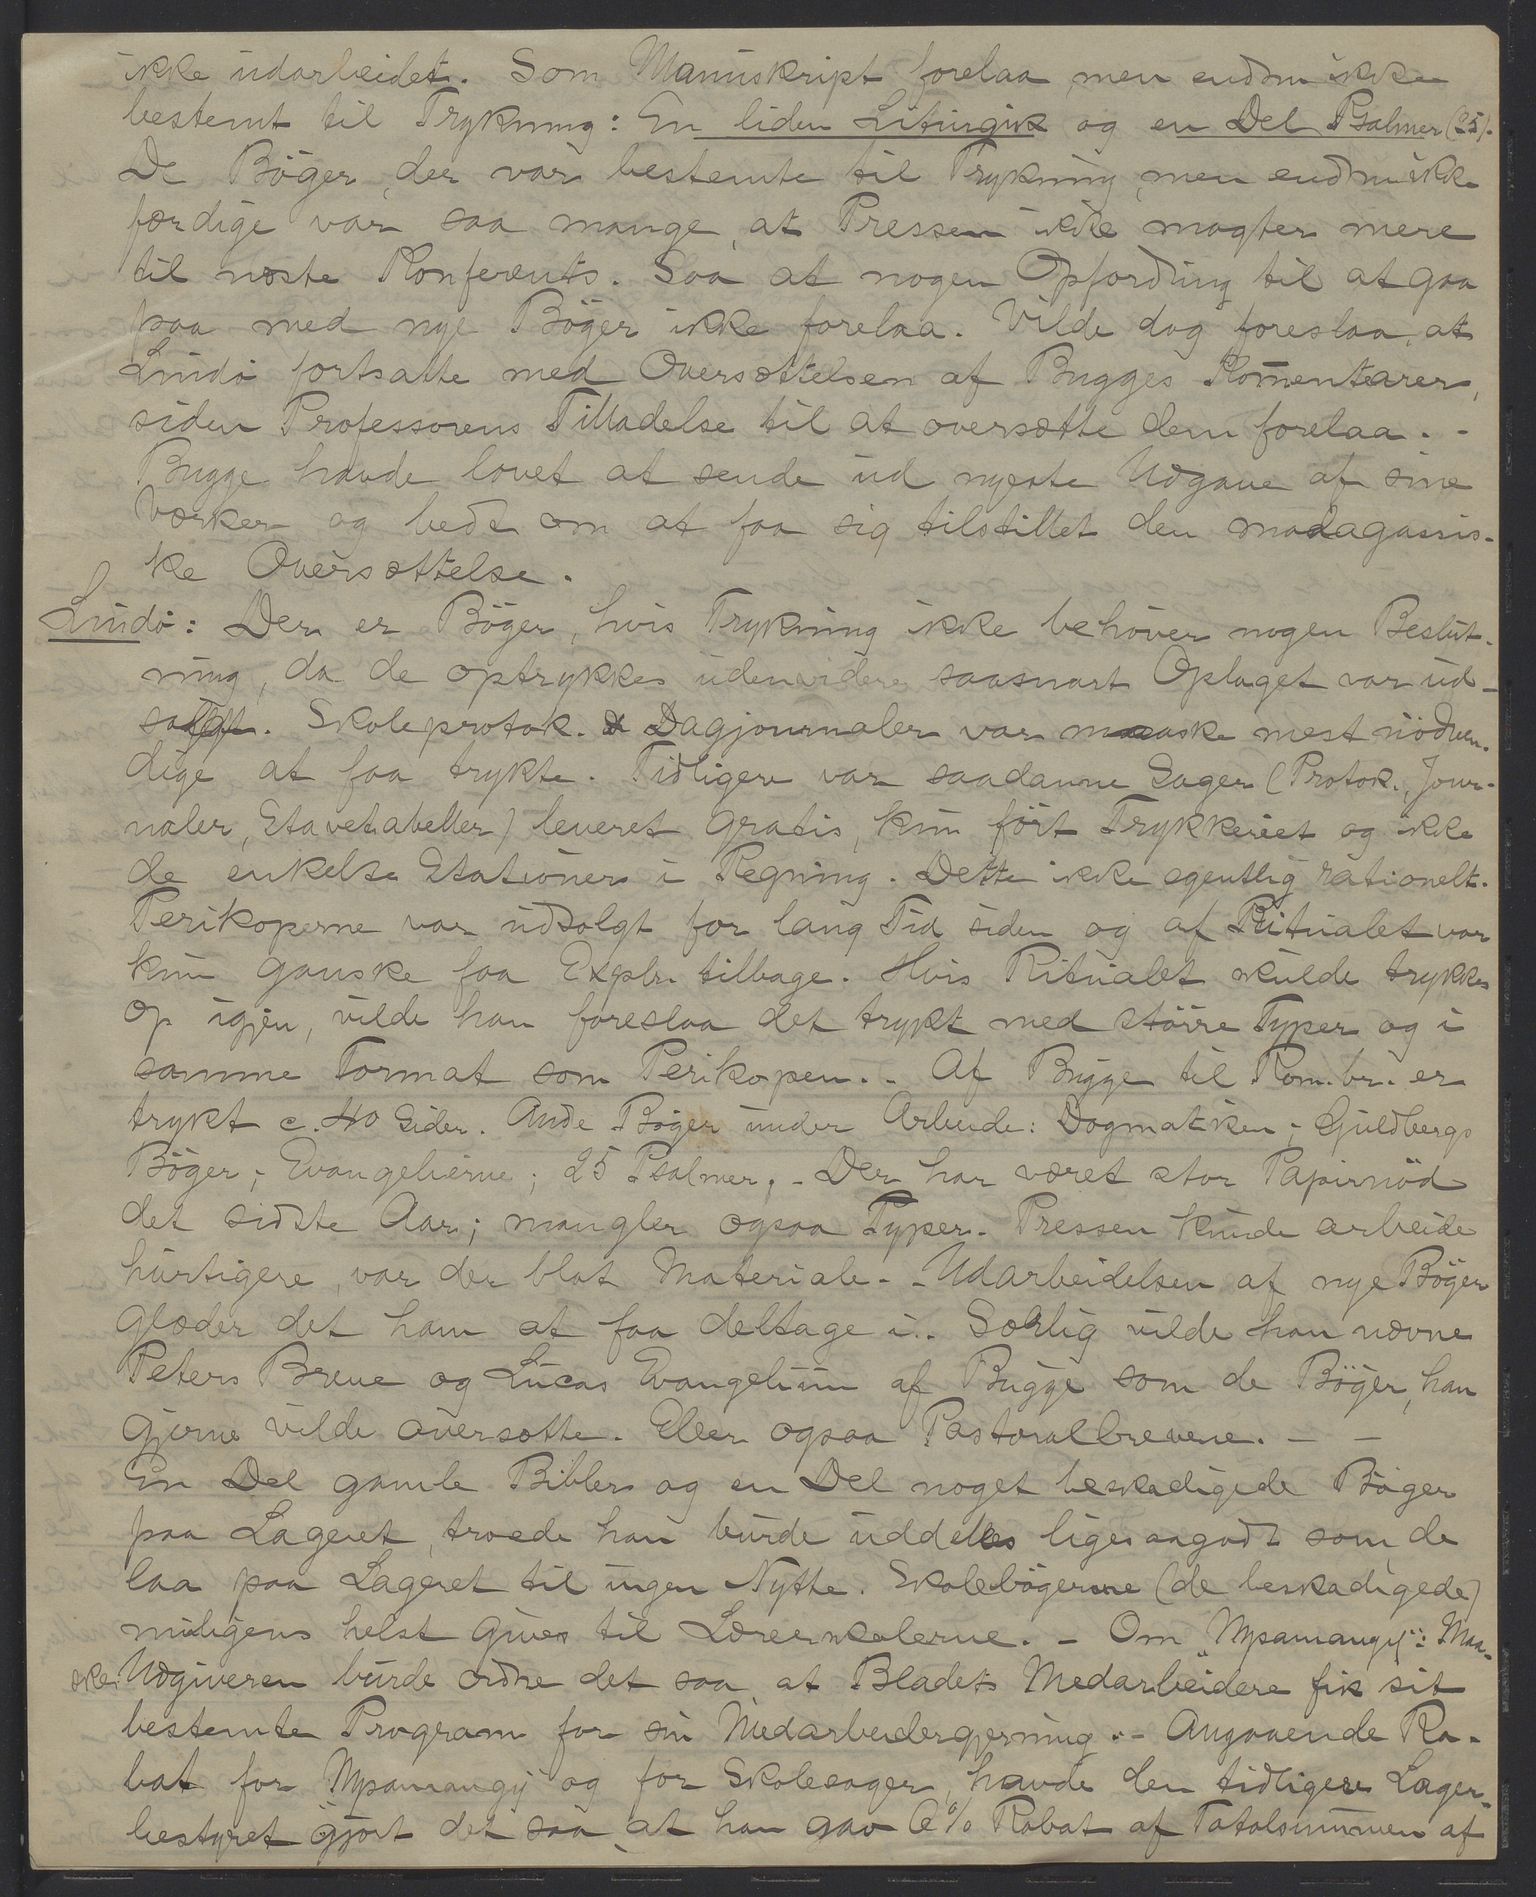 ikke udarbeidet. Som Manuskript forelaa men endnu ikke
bestemt til Trykning: En liden Liturgik og en Del Psalmer (25).
De Böger, der var bestemte til Trykning, men endnu ikke
færdige var saa mange, at Pressen ikke magter mere
til næste Konferents. Saa at nogen Opfordring til at gaa
paa med nye Böger ikke forelaa. Vilde dog foreslaa, at
Lindö fortsatte med Oversættelsen af Bugges Komentarer,
siden Professorens Tilladelse til at oversætte dem forelaa. -
Bugge havde lovet at sende ud nyeste Udgave af sine
Værker og bedt om at faa sig tilstillet den madagassis-
ke Oversættelse.
Lindö: Der er Böger, hvis Trykning ikke behöver nogen Beslut-
ning, da de optrykkes udenvidere saasnart Oplaget var ud-
solgt. Skoleprotok. & Dagjournaler var maaske mest nödven-
dige at faa trykte. Tidligere var saadanne Sager (Protok., Jour-
naler, Stavetabeller) leveret gratis, kun fört Trykkeriet og ikke
de enkelte Stationer i Regning. Dette ikke egentlig rationelt.
Perikoperne var udsolgt for lang Tid siden og af Ritualet var
kun ganske faa Explr. tilbage. Hvis Ritualet skulde trykkes
op igjen, vilde han foreslaa det trykt med större Typer og i
samme Format som Perikopen. - Af Bugge til Rom. br. er
trykt c. 40 Sider. Andre Böger under Arbeide: Dogmatiken; Guldbergs
Böger; Evangelierne; 25 Psalmer. - Der har været stor Papirnöd
det sidste Aar; mangler ogsaa Typer. Pressen kunde arbeide
hurtigere, var der blot Materiale. - Udarbeidelsen af nye Böger
glæder det ham at faa deltage i. Særlig vilde han nævne
Peters Breve og Lucas Evangelium af Bugge som de Böger, han
gjerne vilde oversætte. Eller ogsaa Pastoralbrevene. - -
En Del gamle Bibler og en Del noget beskadigede Böger
paa Lageret, troede han burde uddeles ligesaagodt som de
laa paa Lageret til ingen Nytte. Skolebögerne (de beskadigede)
muligens helst gives til Lærerskolerne. - Om Mpamangy: Maa-
ske Udgiveren burde ordne det saa at Bladets Medarbeidere fik sit
bestemte Program for sin Medarbeidergjerning. - Angaaende Ra-
bat for Mpamangy og for Skolesager, havde den tidligere Lager-
bestyret gjort det saa, at han gav % Rabat af Totalsummen af